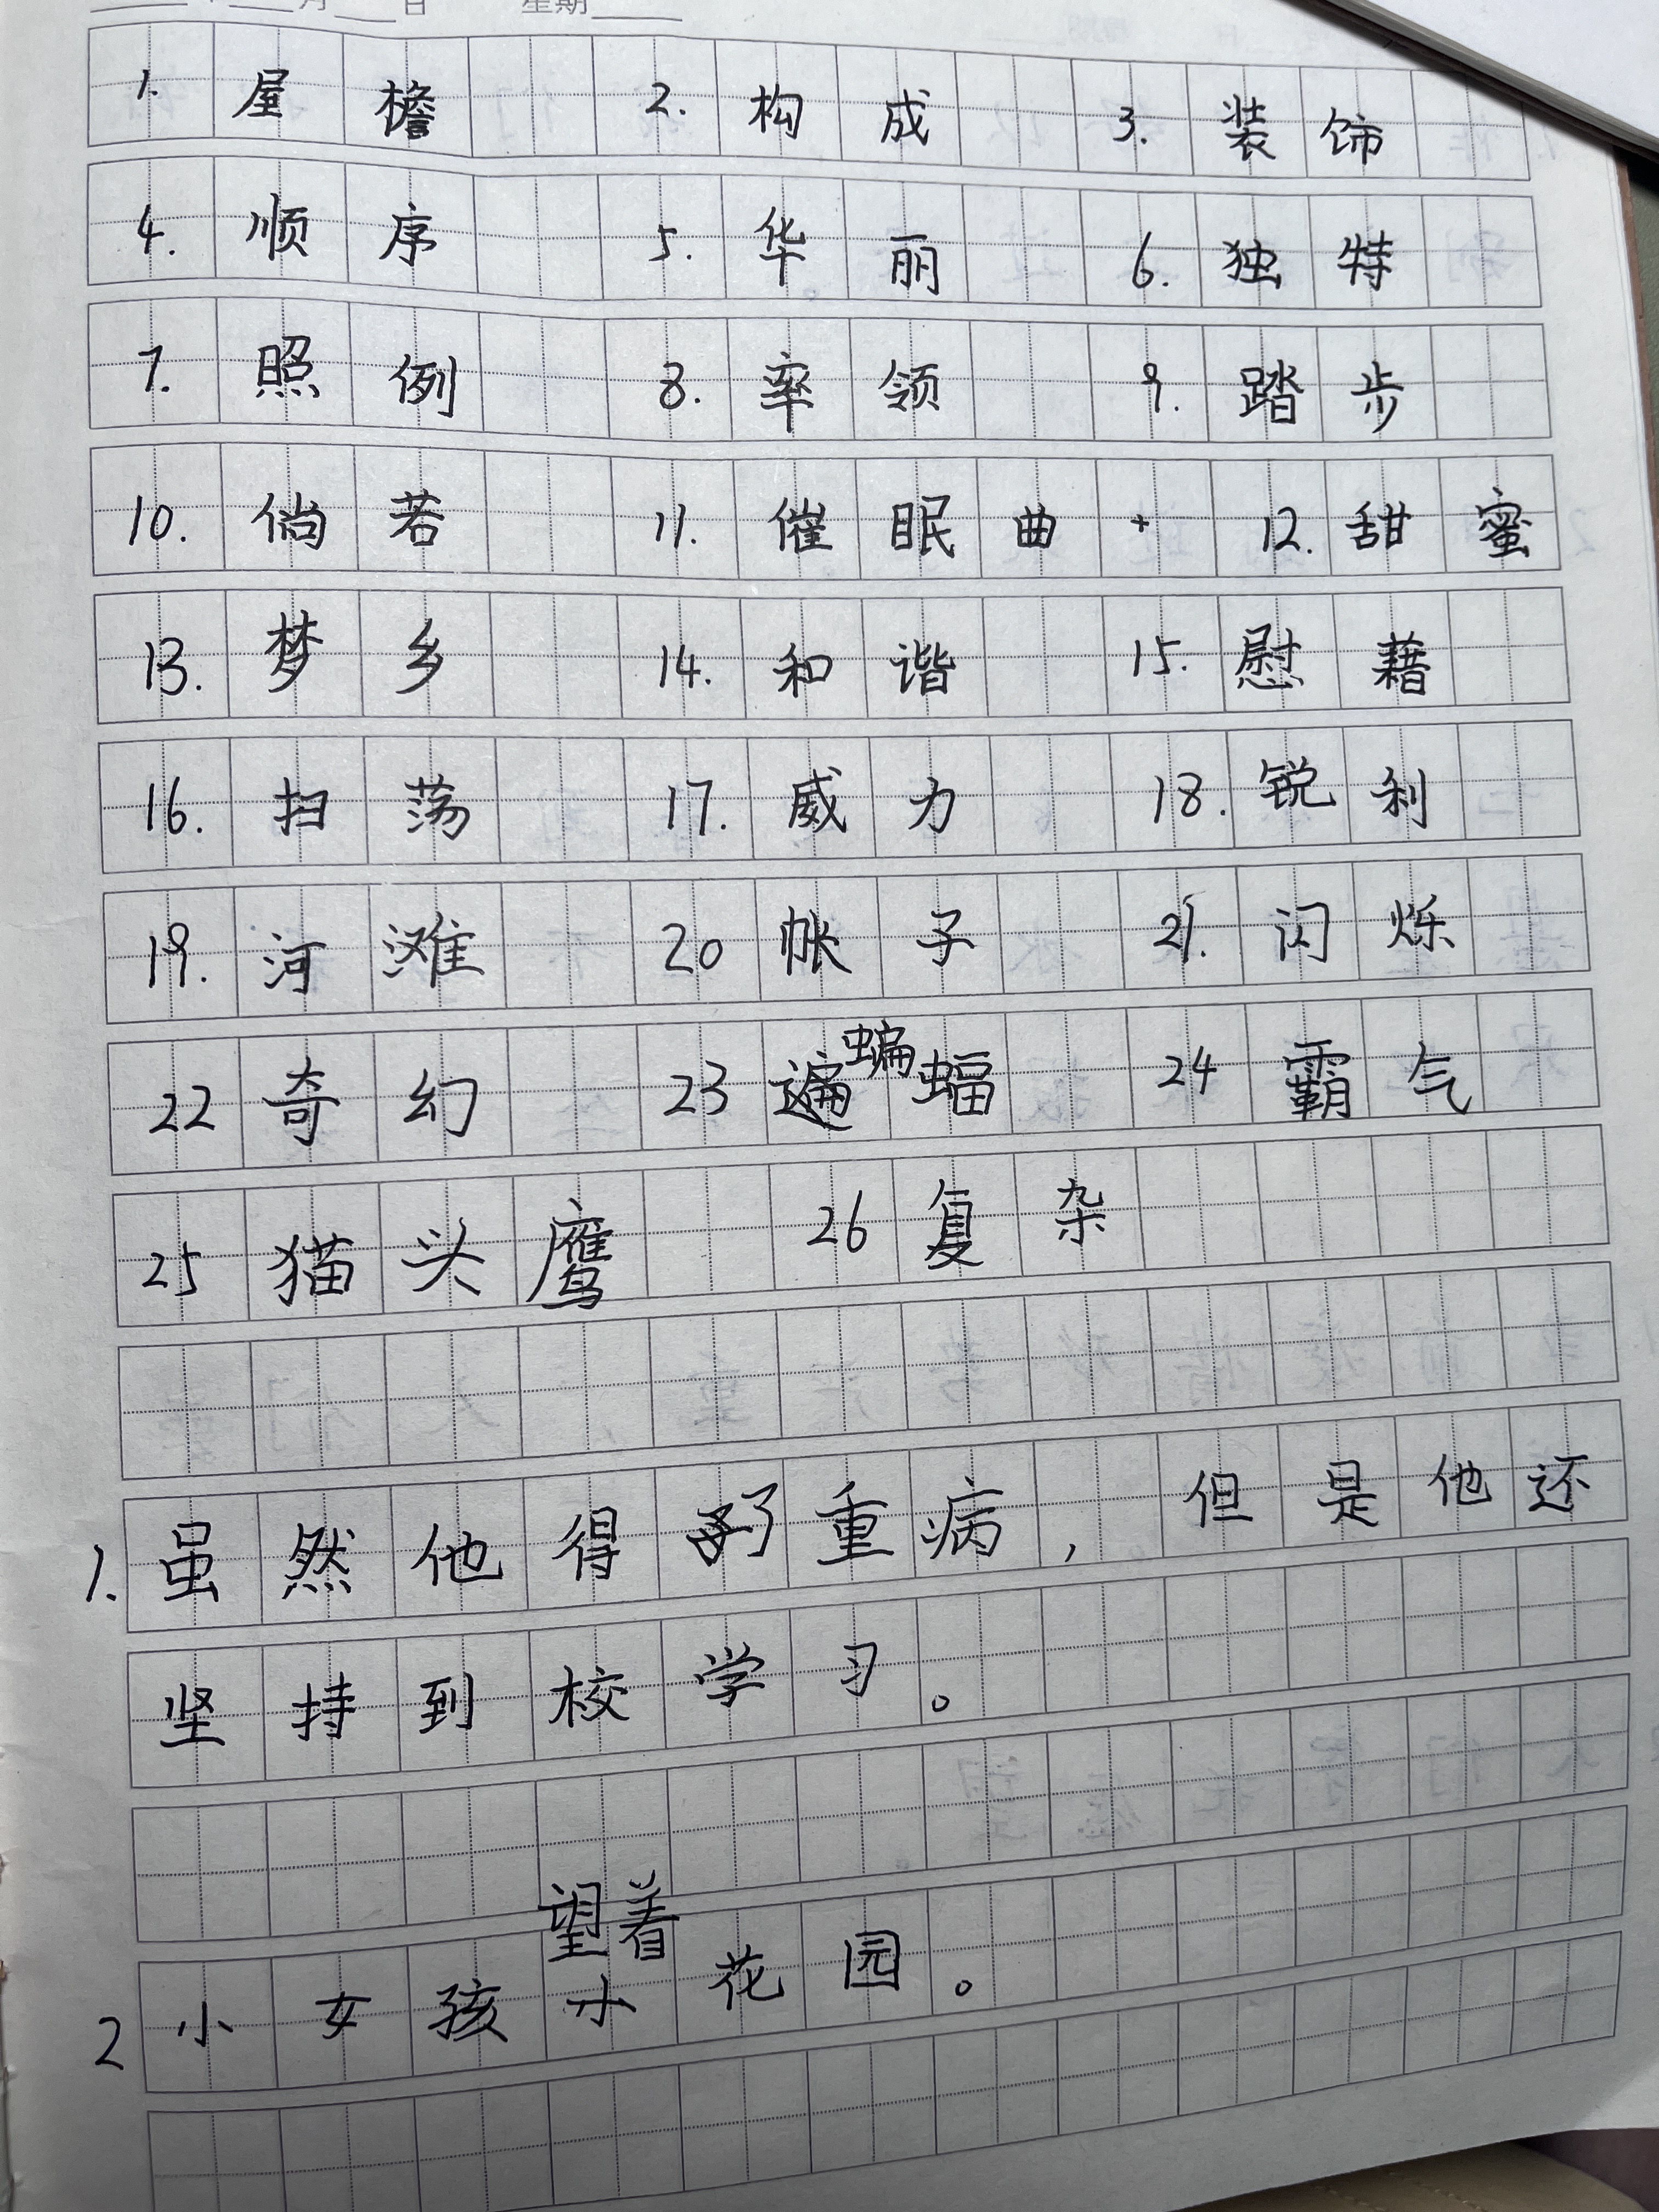 月 日 星期
1. 屋檐 2. 构成 3. 装饰
4. 顺序 5. 华丽 6. 独特
7. 照例 8. 率领 9. 踏步
10. 倘若 11. 催眠曲 12. 甜蜜
13. 梦乡 14. 和谐 15. 慰藉
16. 扫荡 17. 威力 18. 锐利
19. 河滩 20 帐子 21. 闪烁
22 奇幻 23 蝙蝠 24 霸气
25 猫头鹰 26 复杂
1. 虽然他得了重病，但是他还
坚持到校学习。
望着
2 小女孩小花园。